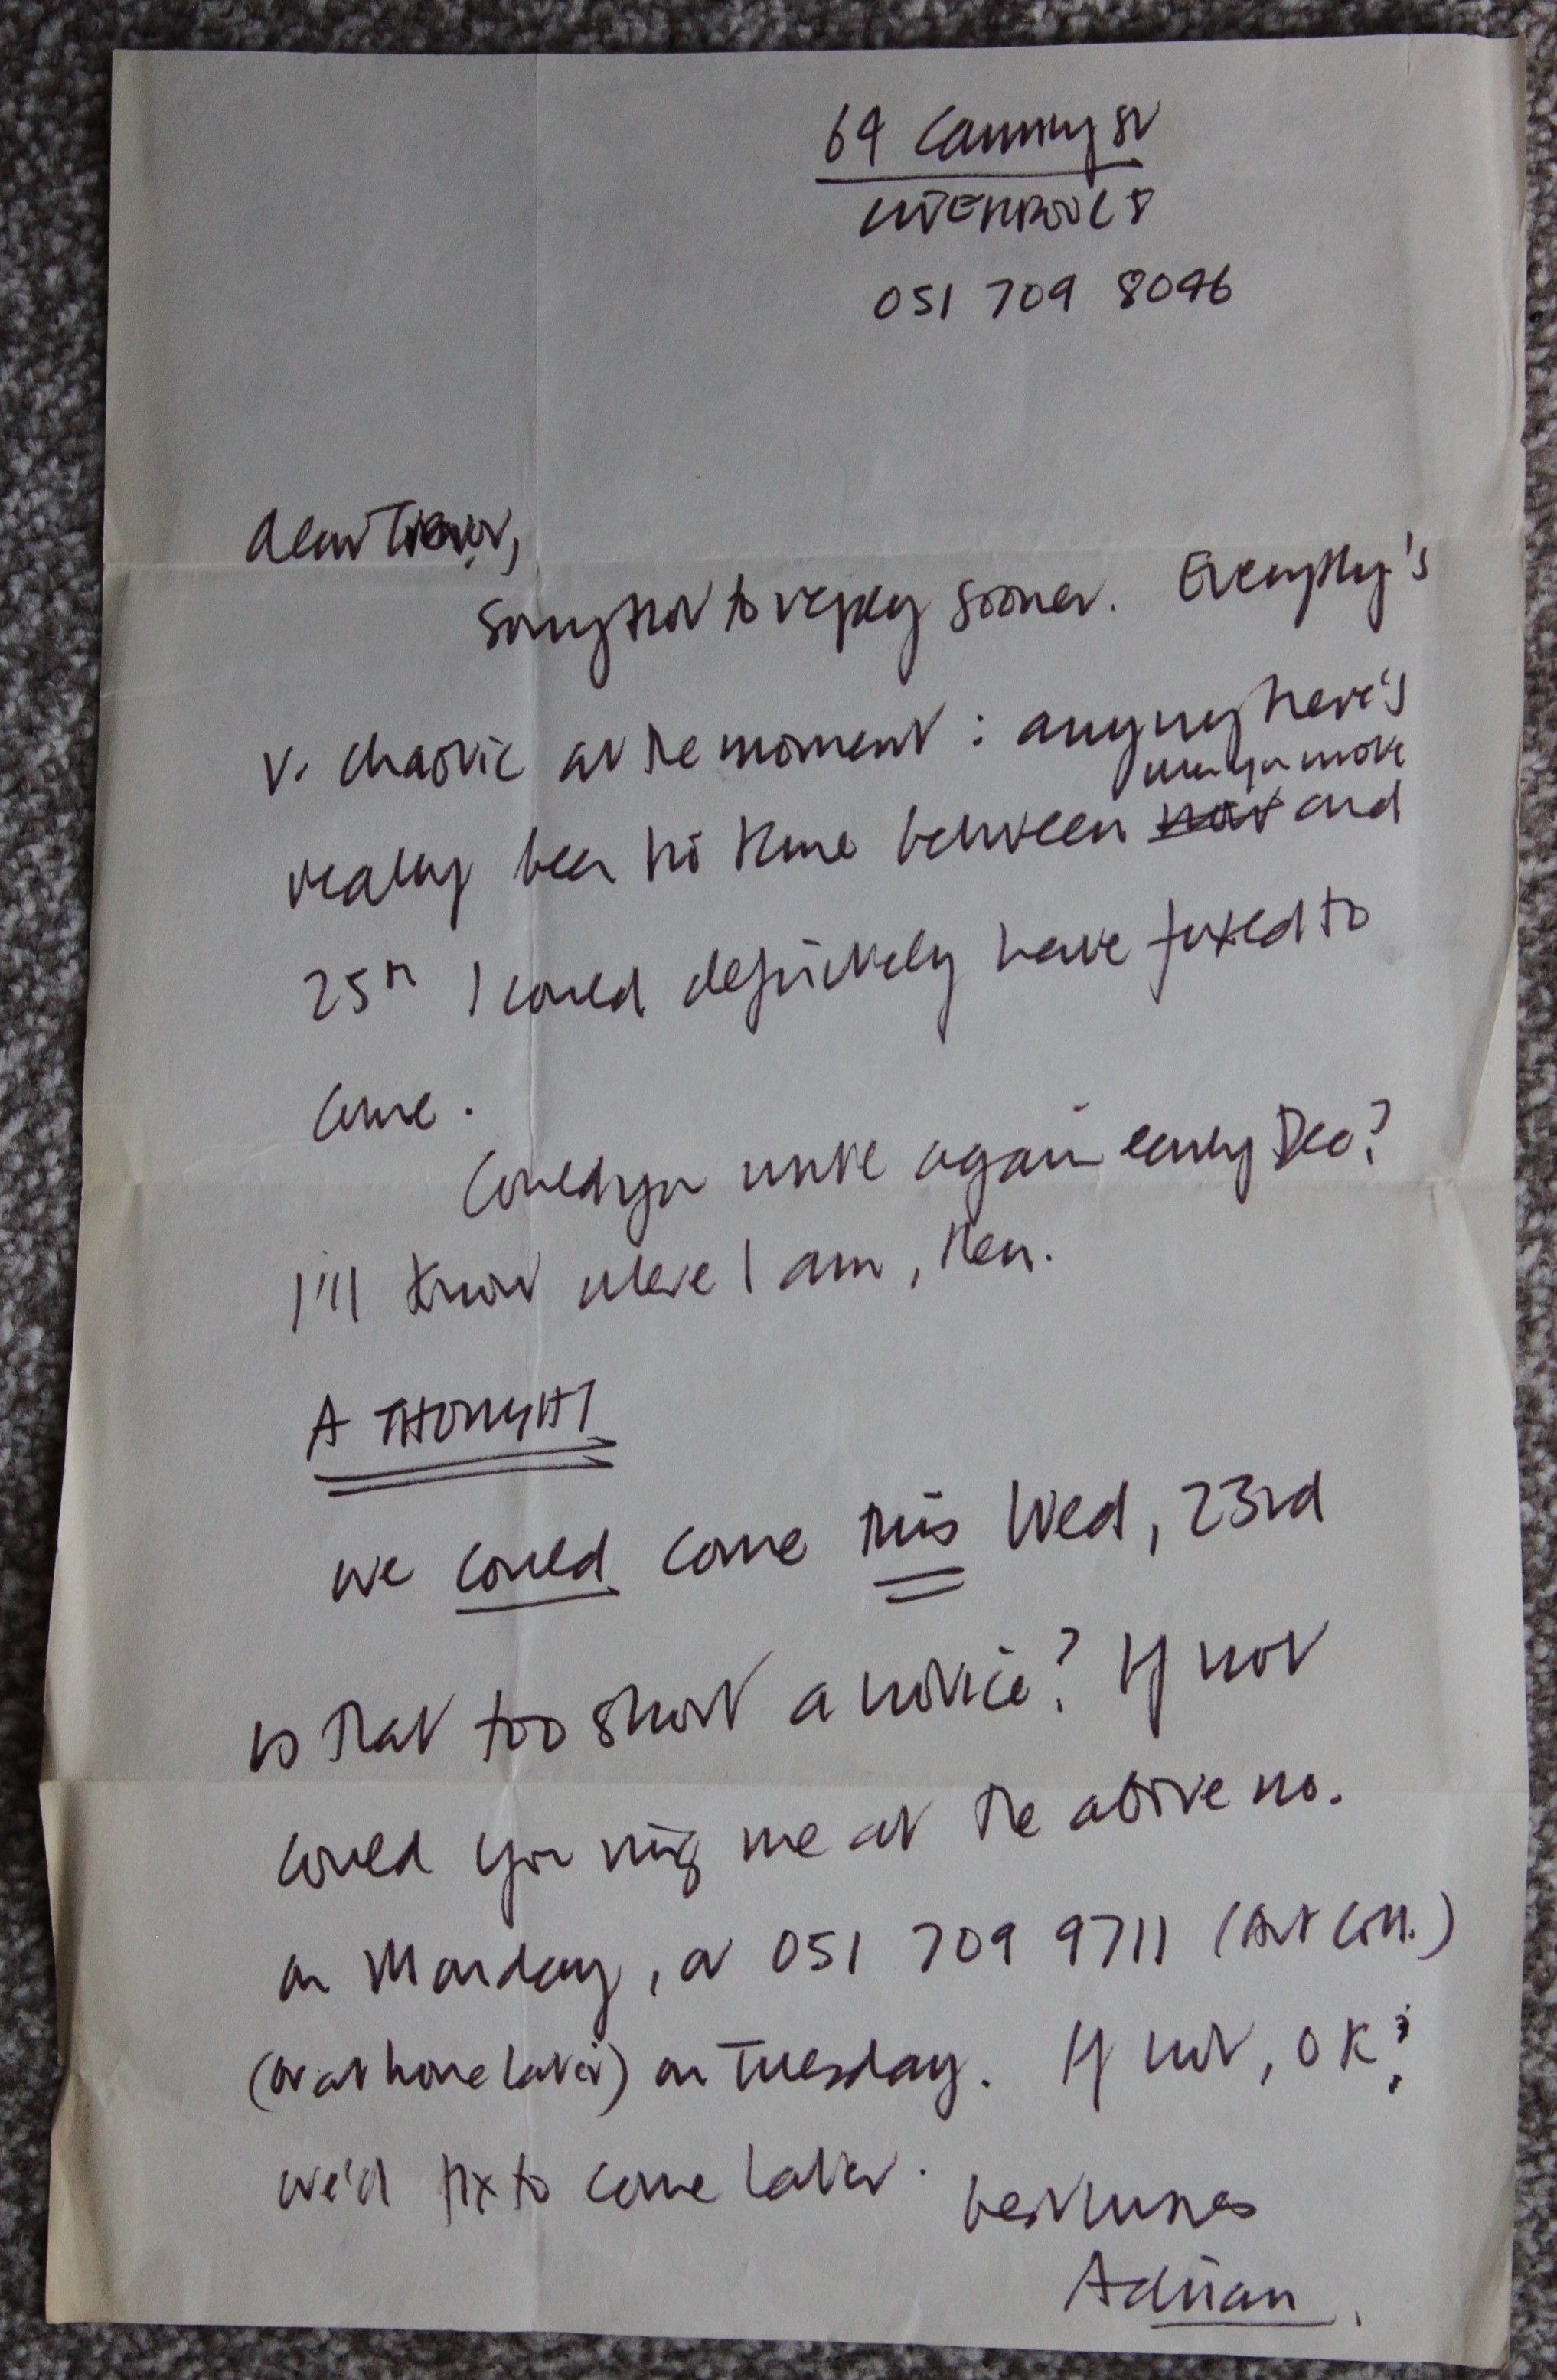 64 Canning St
LIVERPOOL 8
051 709 8046
Dear Trevor,
Sorry not to reply sooner. Everything's
v. chaotic at the moment : anyway there's
when you wrote
really been no time between and
25th I could definitely have fixed to
come.
Could you write again early Dec?
I'll know where I am, then.
A THOUGHT
we could come this Wed, 23rd
is that too short a notice? If not
could you ring me at the above no.
on Monday, or 051 709 9711 (Art Coll.)
(or at home later) on Tuesday. If not, OK:
we'd fix to come later.
best wishes
Adrian.